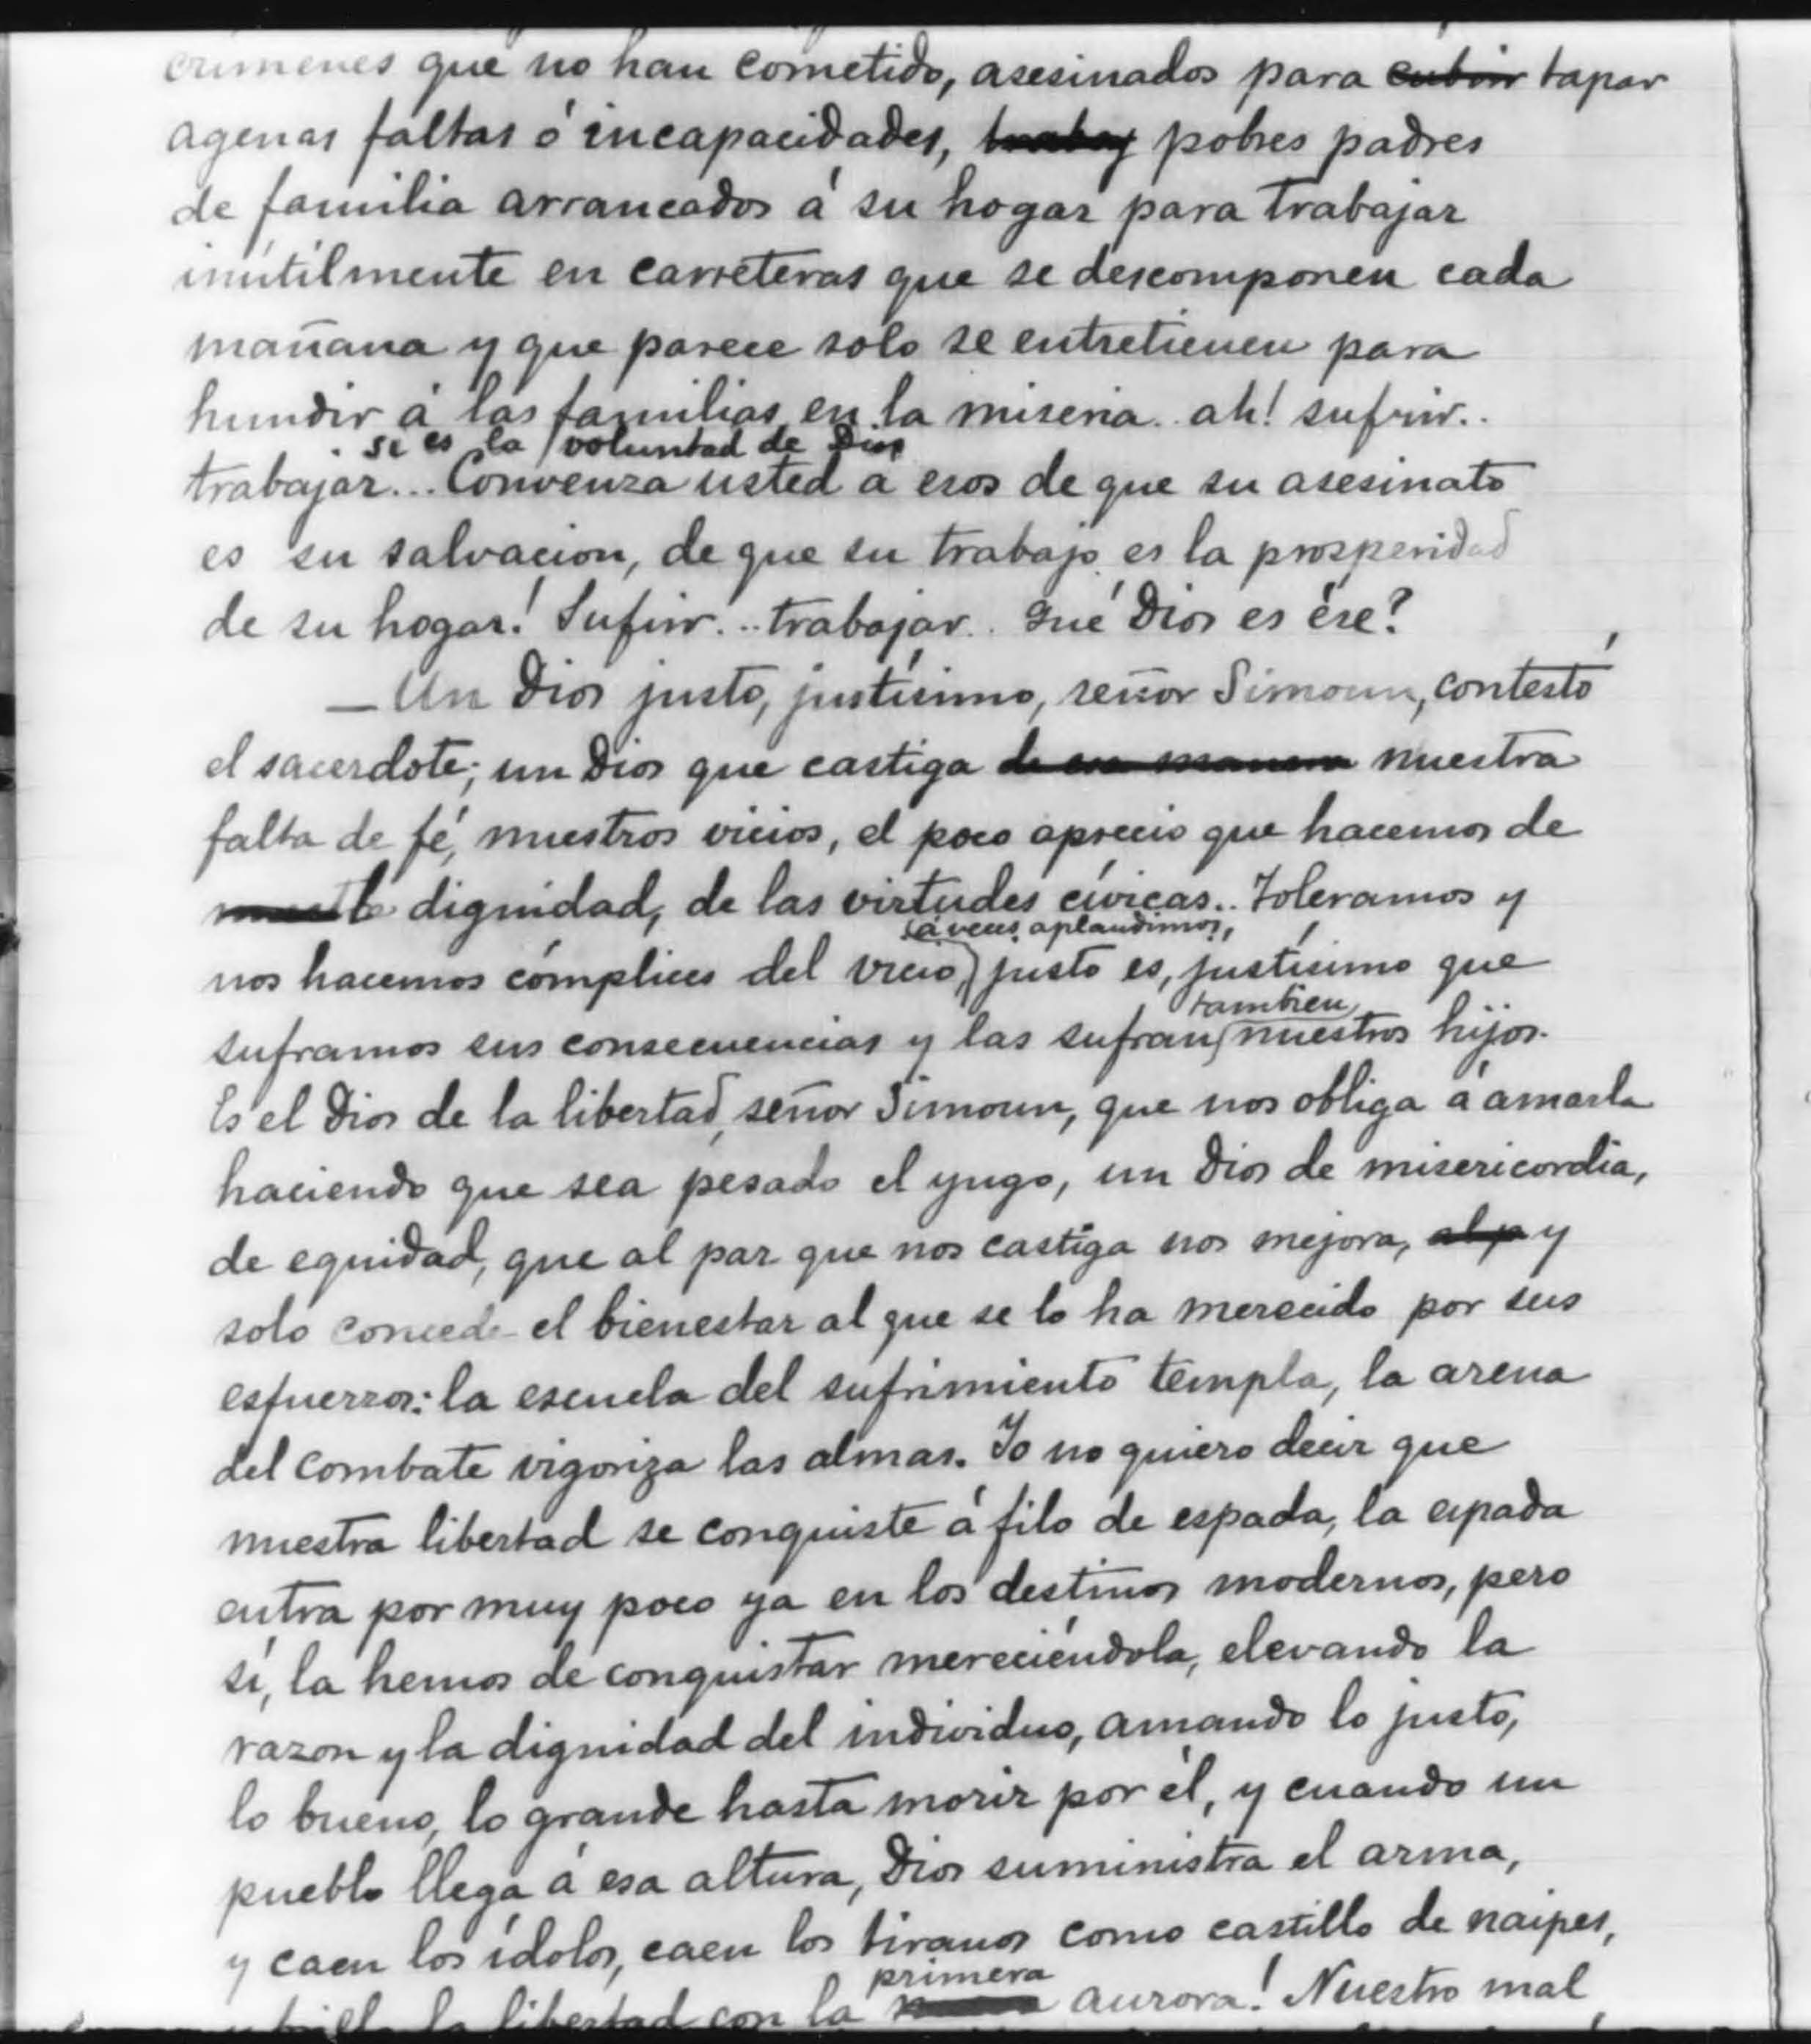 crímenes que no han cometido, asesinados para cubrir tapar
agenas faltas ó incapacidades, trabaj pobres padres
de familia arrancados á su hogar para trabajar
inútilmente en carreteras que se descomponen cada
mañana y que parece solo se entretienen para
hundir á las familias en la miseria.. ah! sufrir..
si es la voluntad de Dios
trabajar... Convenza usted á esos de que su asesinato
es su salvacion, de que su trabajo es la prosperidad
de su hogar! Sufrir... trabajar.. Qué Dios es ése?
— Un Dios justo, justísimo, señor Simoun, contestó
el sacerdote; un Dios que castiga de esa manera nuestra
falta de fé, nuestros vicios, el poco aprecio que hacemos de
la dignidad, de las virtudes cívicas.. Toleramos y
á veces aplaudimos,
nos hacemos cómplices del vicio, justo es, justísimo que
tambien
suframos sus consecuencias y las sufran nuestros hijos.
Es el Dios de la libertad, señor Simoun, que nos obliga á amarla
haciendo que sea pesado el yugo, un Dios de misericordia,
de equidad, que al par que nos castiga nos mejora, al p y
solo concede el bienestar al que se lo ha merecido por sus
esfuerzos: la escuela del sufrimiento templa, la arena
del combate vigoriza las almas. Yo no quiero decir que
nuestra libertad se conquiste á filo de espada, la espada
entra por muy poco ya en los destinos modernos, pero
sí, la hemos de conquistar mereciéndola, elevando la
razon y la dignidad del individuo, amando lo justo,
lo bueno, lo grande hasta morir por él, y cuando un
pueblo llega á esa altura, Dios suministra el arma,
y caen los ídolos, caen los tiranos como castillo de naipes,
primera
y brilla la libertad con la aurora! Nuestro mal